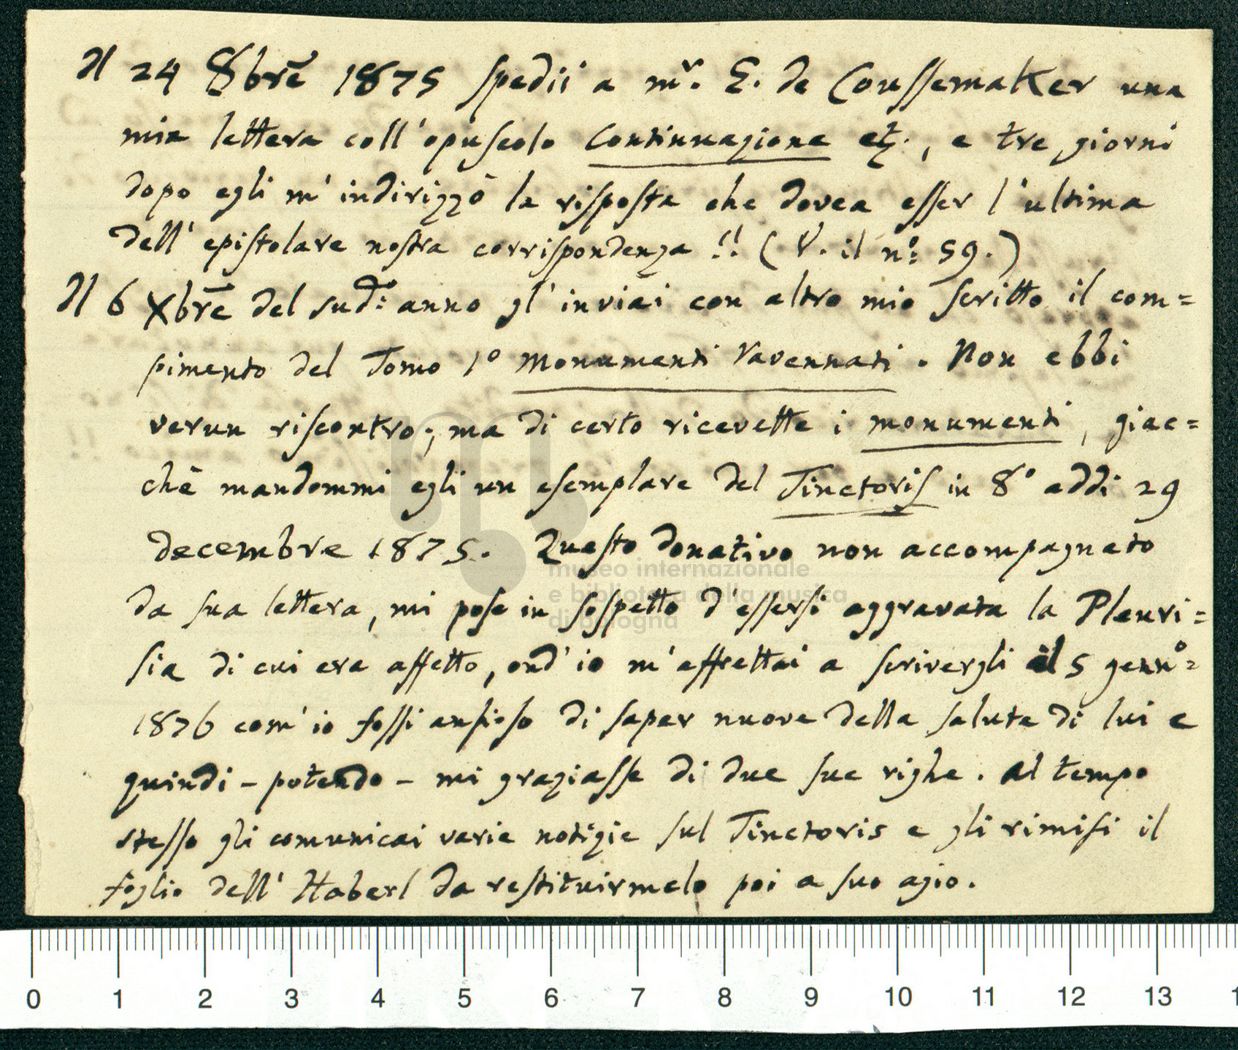 Il 24 8brē 1875 spedii a mr. E. de Coussemaker una
mia lettera coll'opuscolo Continuazione etc., e tre giorni
dopo egli m'indirizzò la risposta che dovea esser l'ultima
dell'epistolare nostra corrispondenza !! (V. il nº: 59.)
Il 6 Xbrē del sudº: anno gl'inviai con altro mio scritto il com=
pimento del Tomo 1º monumenti ravennati. Non ebbi
verun riscontro; ma di certo ricevette i monumenti, giac=
chè mandommi egli un esemplare del Tinctoris in 8º addì 29
decembre 1875. Questo donativo non accompagnato
da sua lettera, mi pose in sospetto d'essersi aggravata la Pleuri=
sia di cui era affetto, ond'io m'affrettai a scrivergli il 5 gennº=
1876 com'io fossi ansioso di saper nuove della salute di lui e
quindi - potendo - mi graziasse di due sue righe. Al tempo
stesso gli comunicai varie notizie sul Tinctoris e gli rimisi il
foglio dell'Haberl da restituirmelo poi a suo agio.
museo internazionale
e biblioteca della musica
di bologna
0 1 2 3 4 5 6 7 8 9 10 11 12 13